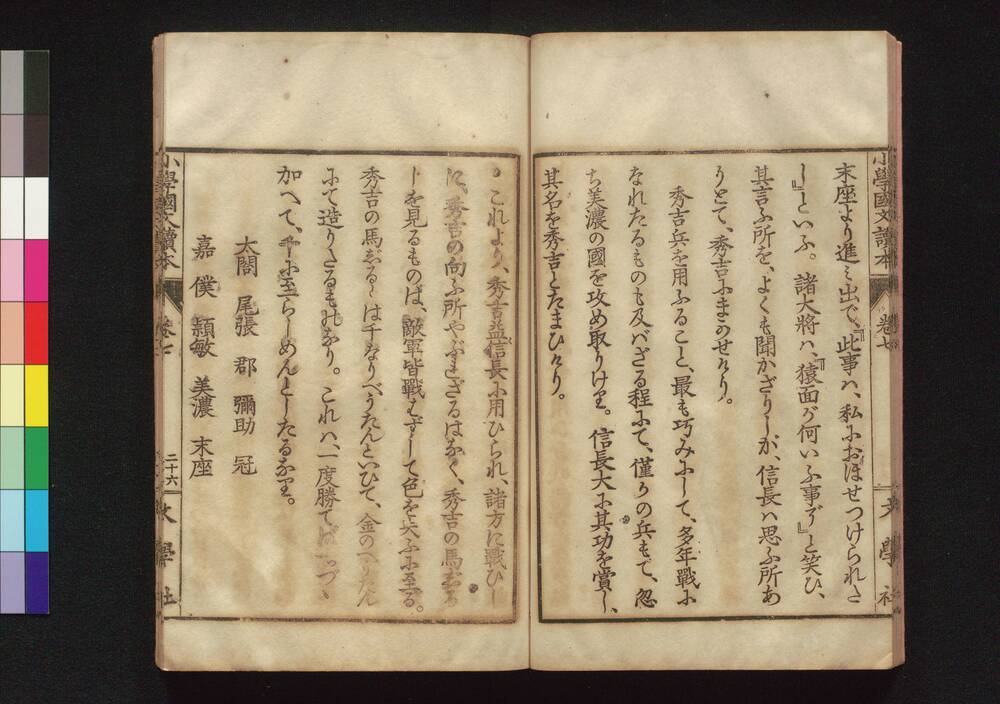 小學國文讀本 卷七 文學社
末座より進み出で、『此事ハ、私におほせつけられた
し』といふ。諸大將ハ、『猿面が何いふ事ぞ』と笑ひ、
其言ふ所を、よくも聞かざりしが、信長ハ思ふ所あ
りとて、秀吉にまかせけり。
秀吉兵を用ふること、最も巧みにして、多年戰に
なれたるものも及バざる程にて、僅かの兵もて、忽
ち美濃の國を攻め取りけり。信長大に其功を賞し、
其名を秀吉とたまひけり。
これより、秀吉益信長に用ひられ、諸方に戰ひし
に、秀吉の向ふ所やぶれざるはなく、秀吉の馬じる
しを見るものは、敵軍皆戰はずして色を失ふに至る。
秀吉の馬じるしは千なりべうたんといひて、金のべうたん
にて造りたるものなり。これハ、一度勝てば一つづゝ
加へて、千に至らしめんとしたるなり。
太閤 尾張 郡 彌助 冠
嘉 僕 穎敏 美濃 末座
小學國文讀本 卷七 二十六 文學社